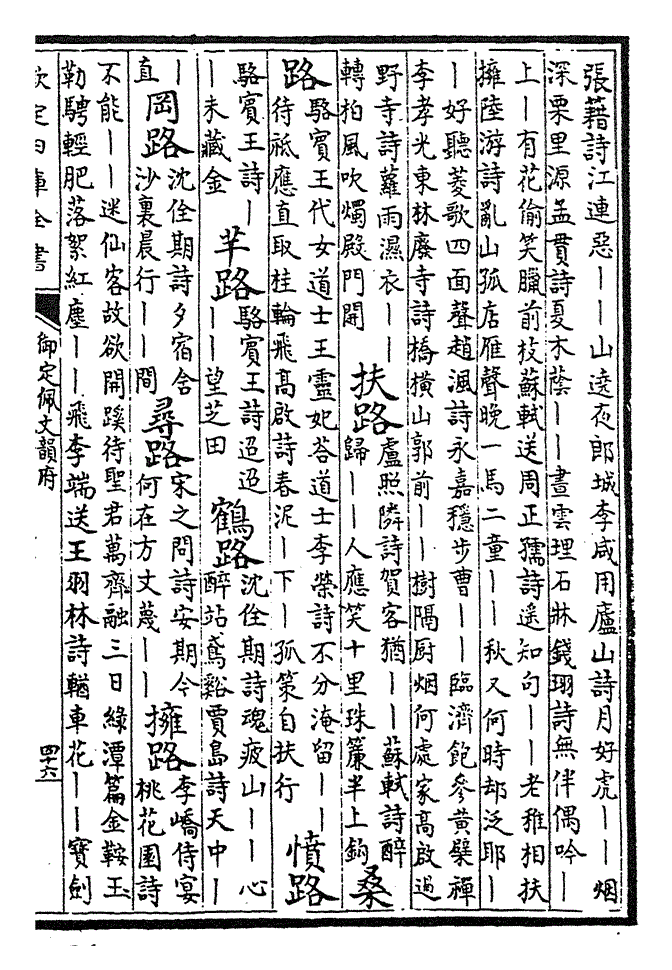 張籍詩江連惡丨丨山遠夜郎城李咸用廬山詩月好虎丨丨烟
深栗里源孟貫詩夏木蔭丨丨晝雲埋石牀錢珝詩無伴偶吟丨
上丨有花偷笑臘前枝蘇軾送周正孺詩遥知句丨丨老稚相扶
擁陸游詩亂山孤店雁聲晚一馬二童丨丨秋又何時却泛耶丨
丨好聽菱歌四面聲趙渢詩永嘉穩步曹丨丨臨濟飽參黄檗禪
李孝光東林廢寺詩橋横山郭前丨丨樹隔厨烟何處家高啟過
野寺詩蘿雨濕衣丨丨轉柏風吹燭殿門開 扶路 盧照隣詩賀客猶丨丨蘇軾詩醉歸丨丨人應笑十里珠簾半上鈎 桑
路 駱賓王代女道士王靈妃荅道士李榮詩不分淹留丨丨待祗應直取桂輪飛高啟詩春泥丨下丨孤策自扶行 憤路
駱賓王詩丨丨未藏金 芊路 駱賓王詩迢迢丨丨望芝田 鶴路 沈佺期詩魂疲山丨丨心醉站鳶谿賈島詩天中丨
丨直 岡路 沈佺期詩夕宿舍沙裏晨行丨丨間 尋路 宋之問詩安期今何在方丈蔑丨丨 擁路 李嶠侍宴桃花園詩
不能丨丨迷仙客故欲開蹊待聖君萬齊融三日緑潭篇金鞍玉
勒騁輕肥落絮紅塵丨丨飛李端送王羽林詩輶車花丨丨寳劍
欽定四庫全書
御定佩文韻府
四十六